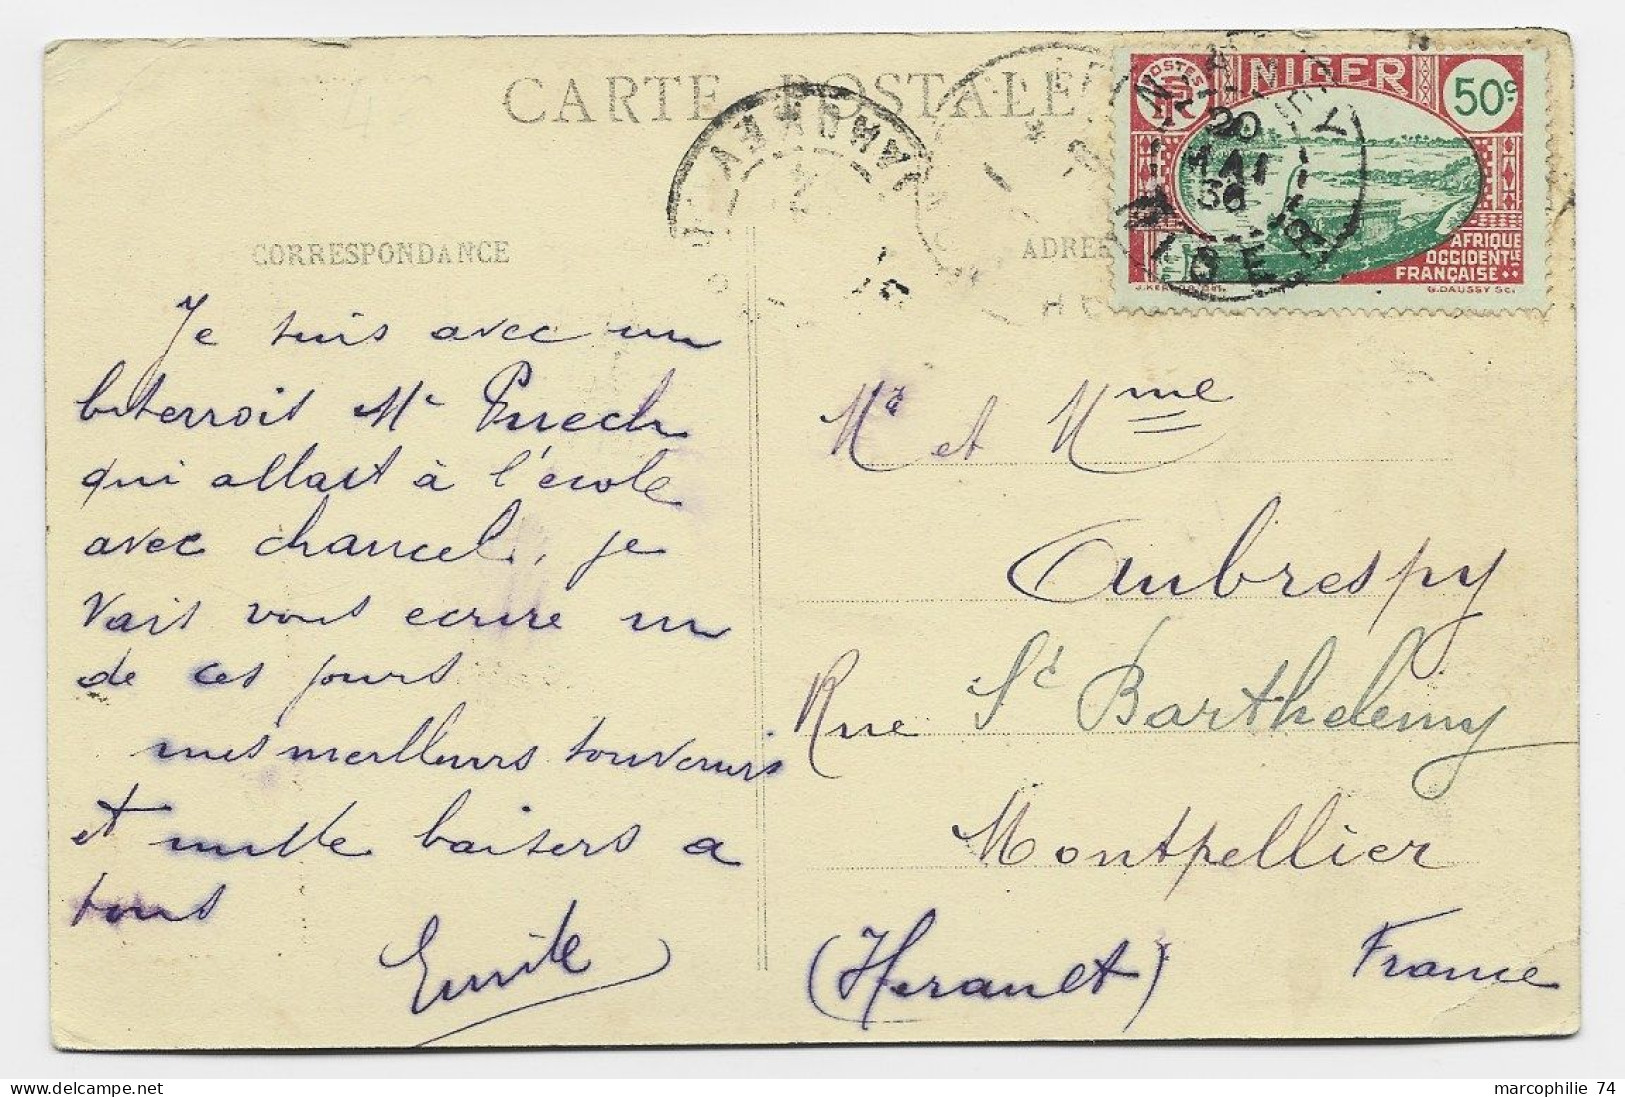 CARTE POSTALE
CORRESPONDANCE
Je suis avec un
biterrois Mr Puech
qui allait à l'école
avec chancel, je
vais vous ecrire un
de ces jours
mes meilleurs souvenirs
et mille baisers a
tous
Emile
POSTES
RF
NIGER
50c
AFRIQUE
OCCIDENTLE
FRANÇAISE
G. DAUSSY Sc.
20
MAI
36
NIGER
Mr et Mme
Aubrespy
Rue St Barthelemy
Montpellier
(Herault) France
marcophilie 74